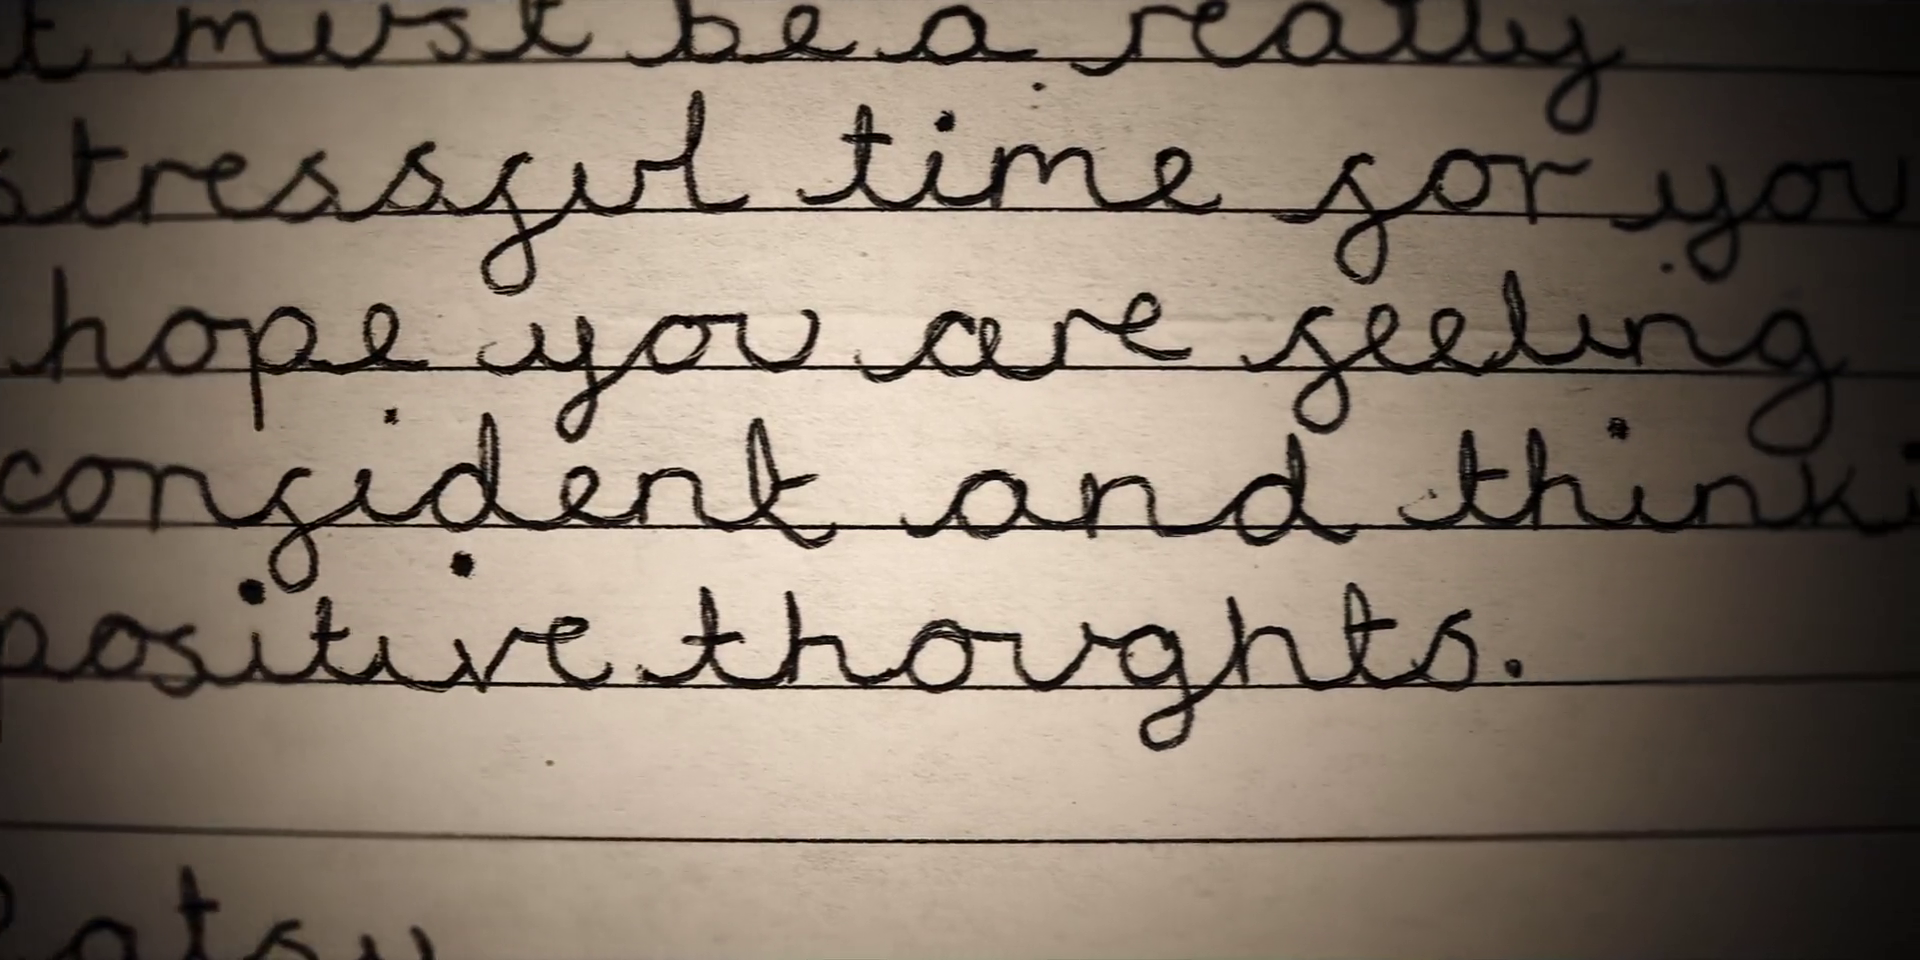 t must be a really
stressful time for you
hope you are feeling
confident and thinki
positive thoughts.